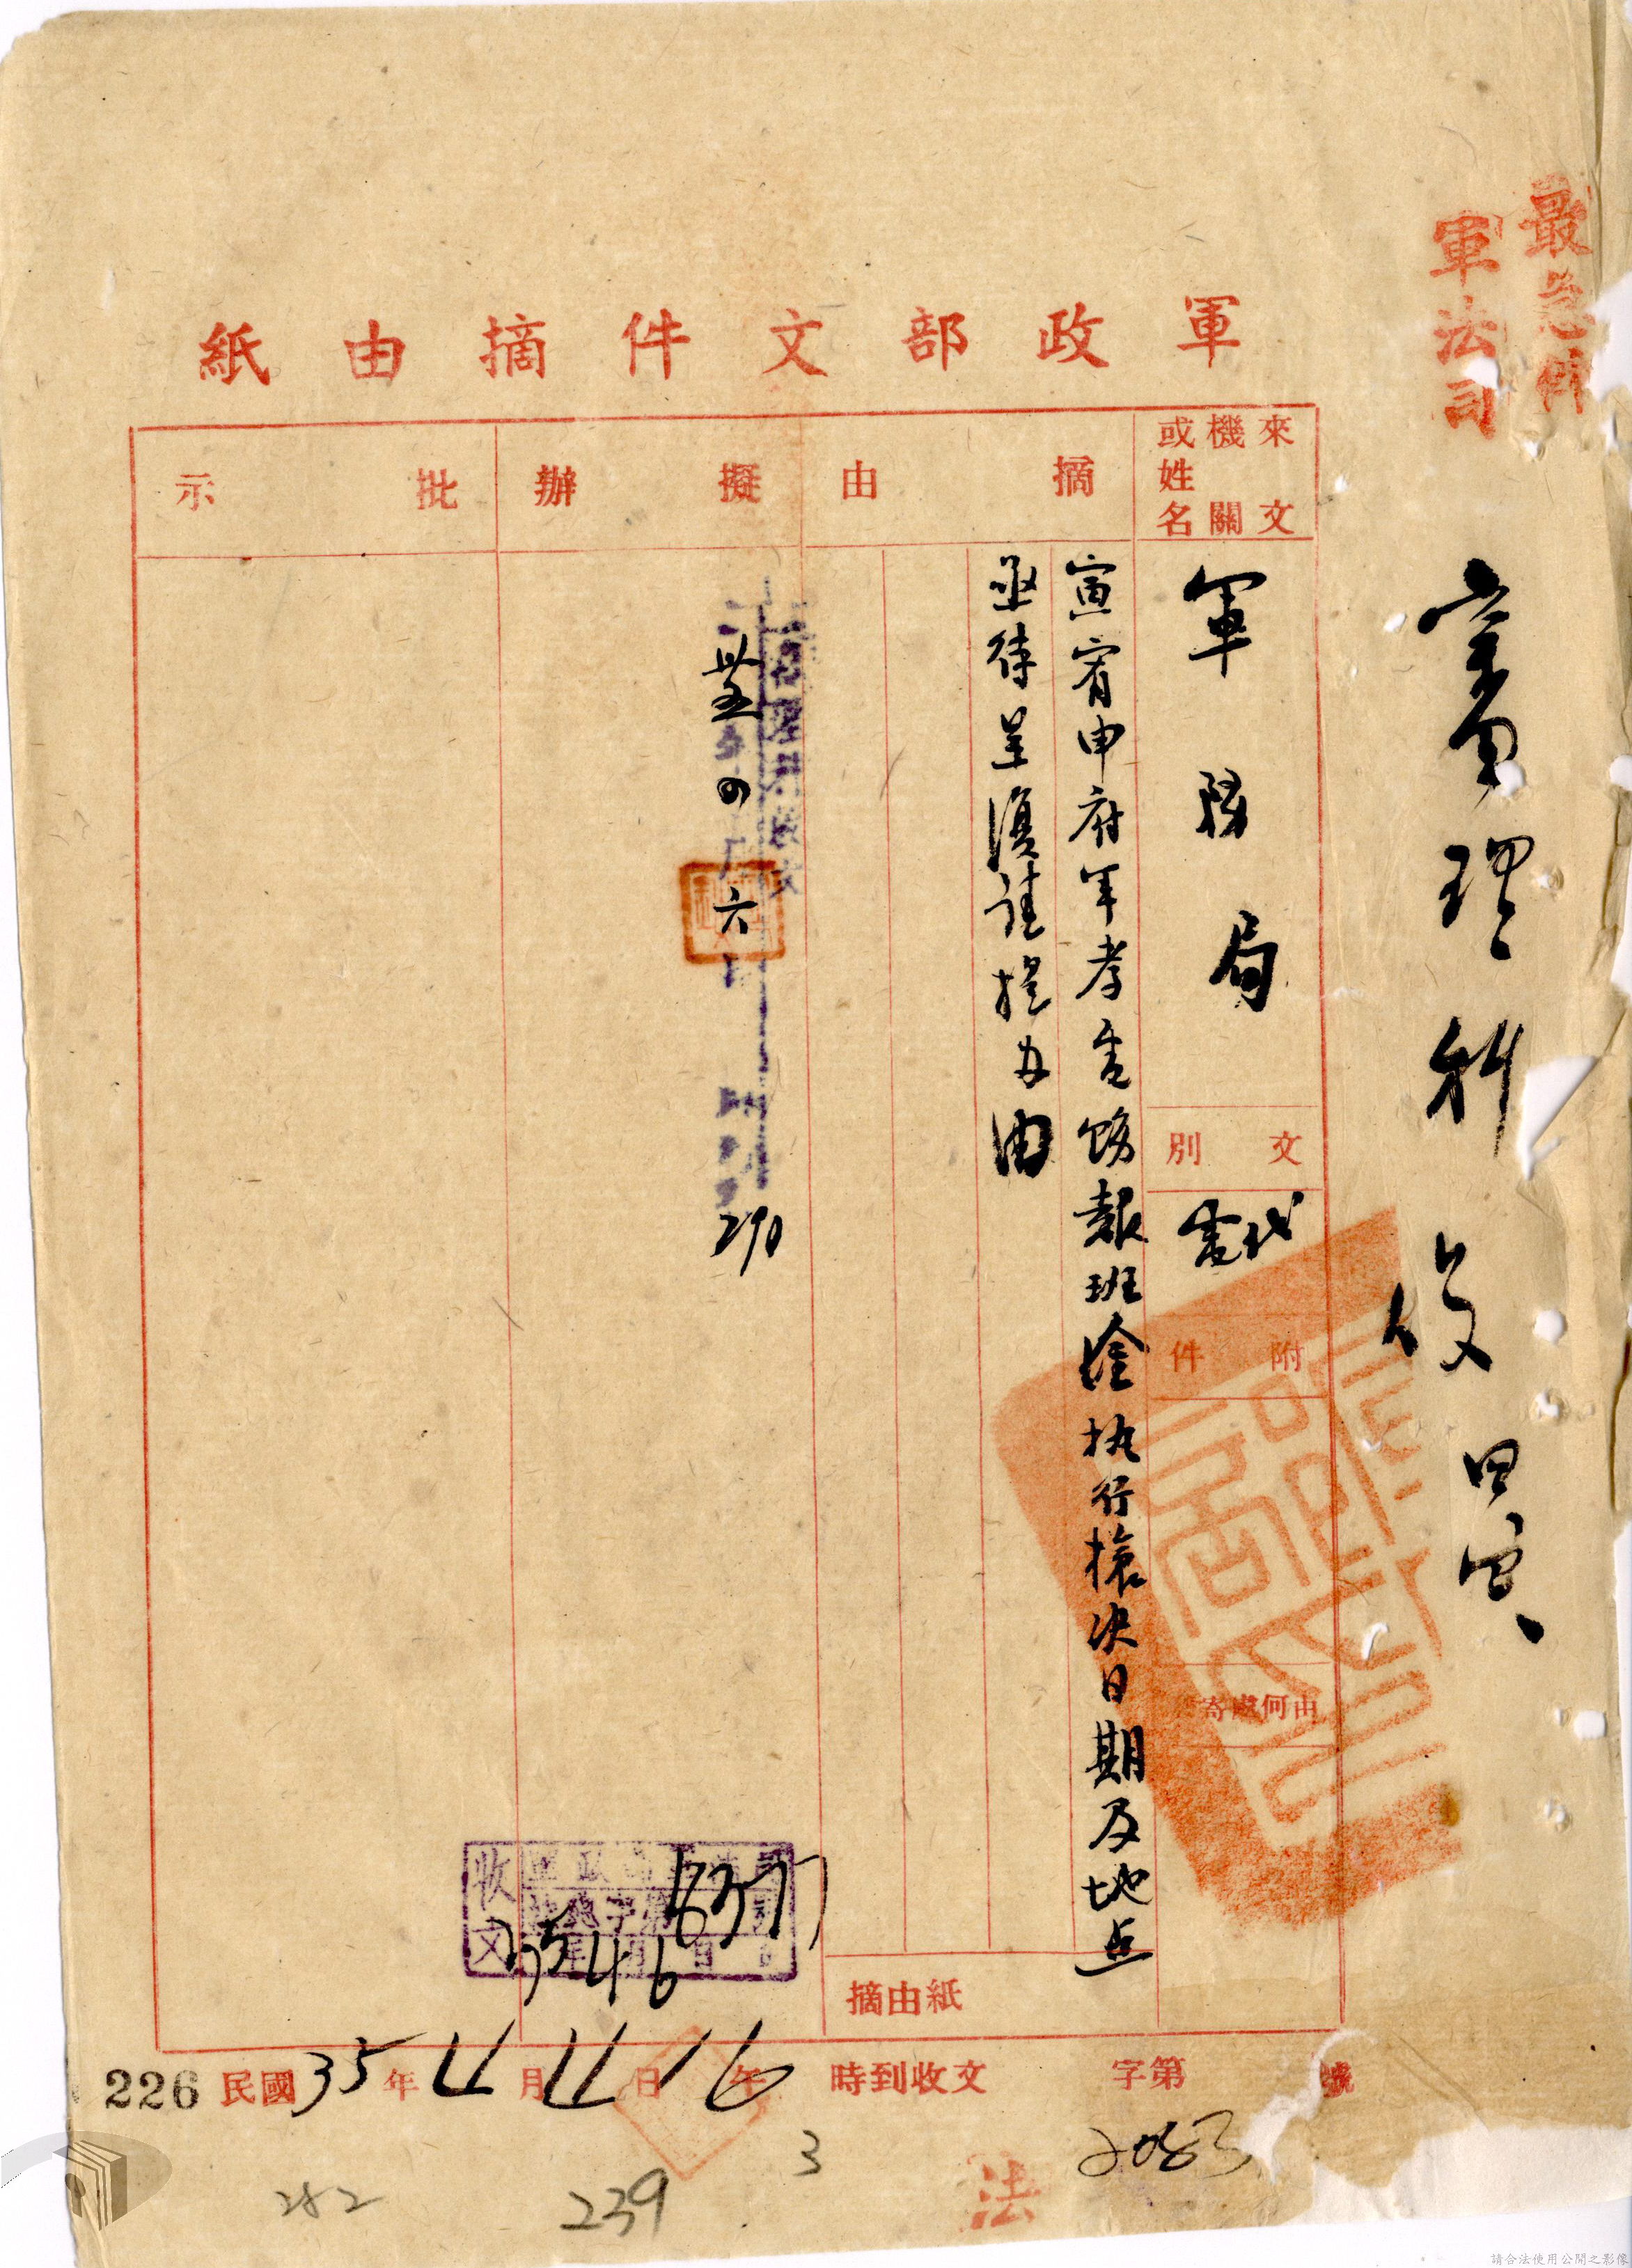 最急件
軍法司
審理科
軍政部文件摘由紙
來文機關或姓名
軍務局
文別
代電
附件
由何處寄
摘由
寅宥申府軍孝電飭報班淦執行槍決日期及地点
亟待呈復請提办由
擬辦
卅五 四 六
批示
收文
6377
35 4 6
紙由摘
第字2083號
文收到時
民國35年4月4日16午
226
3
239
282
法
請合法使用公開之影像